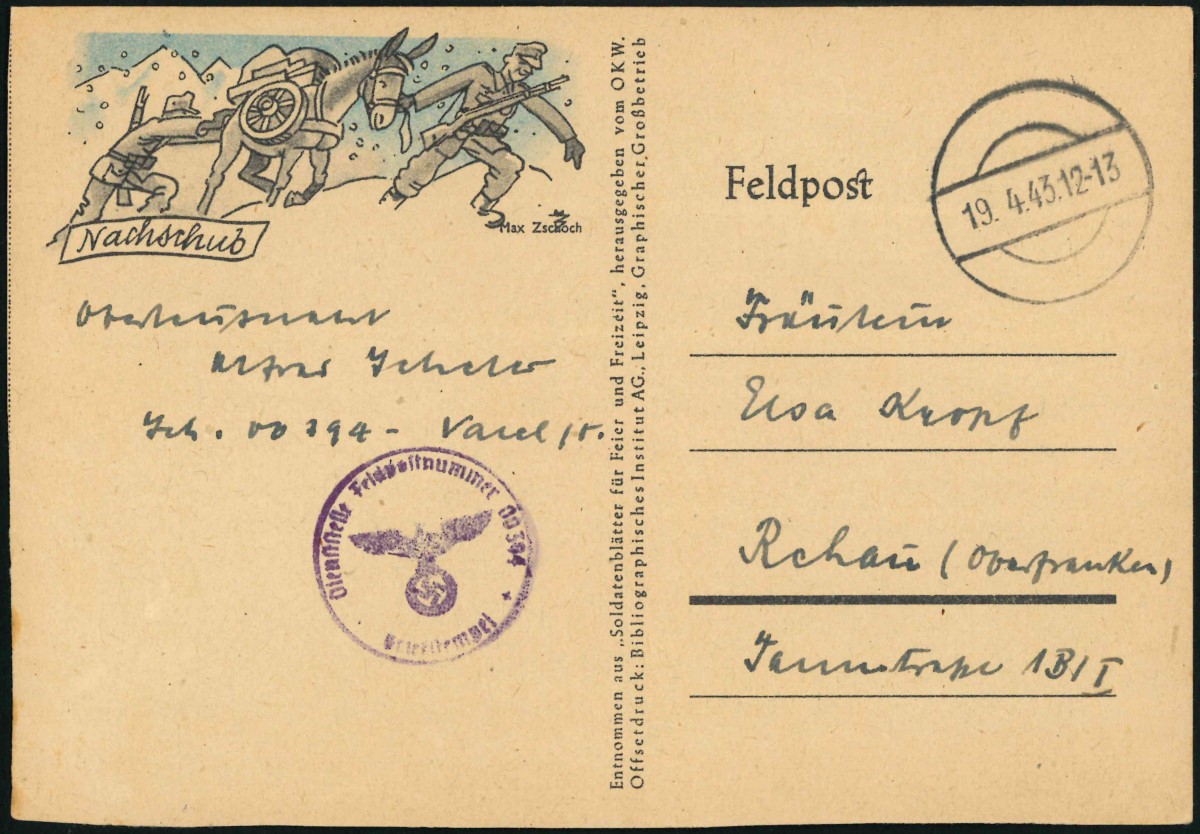 Nachschub
Max Zschoch
Oberleutnant
Alfred
00394 - Varel
Dienststelle Feldpostnummer 00394
Briefstempel
Entnommen aus „Soldatenblätter für Feier und Freizeit", herausgegeben vom OKW.
Offsetdruck: Bibliographisches Institut AG., Leipzig, Graphischer Großbetrieb
Feldpost
19. 4.43.12-13
Fräulein
Elsa Kropf
Rehau (Oberfranken)